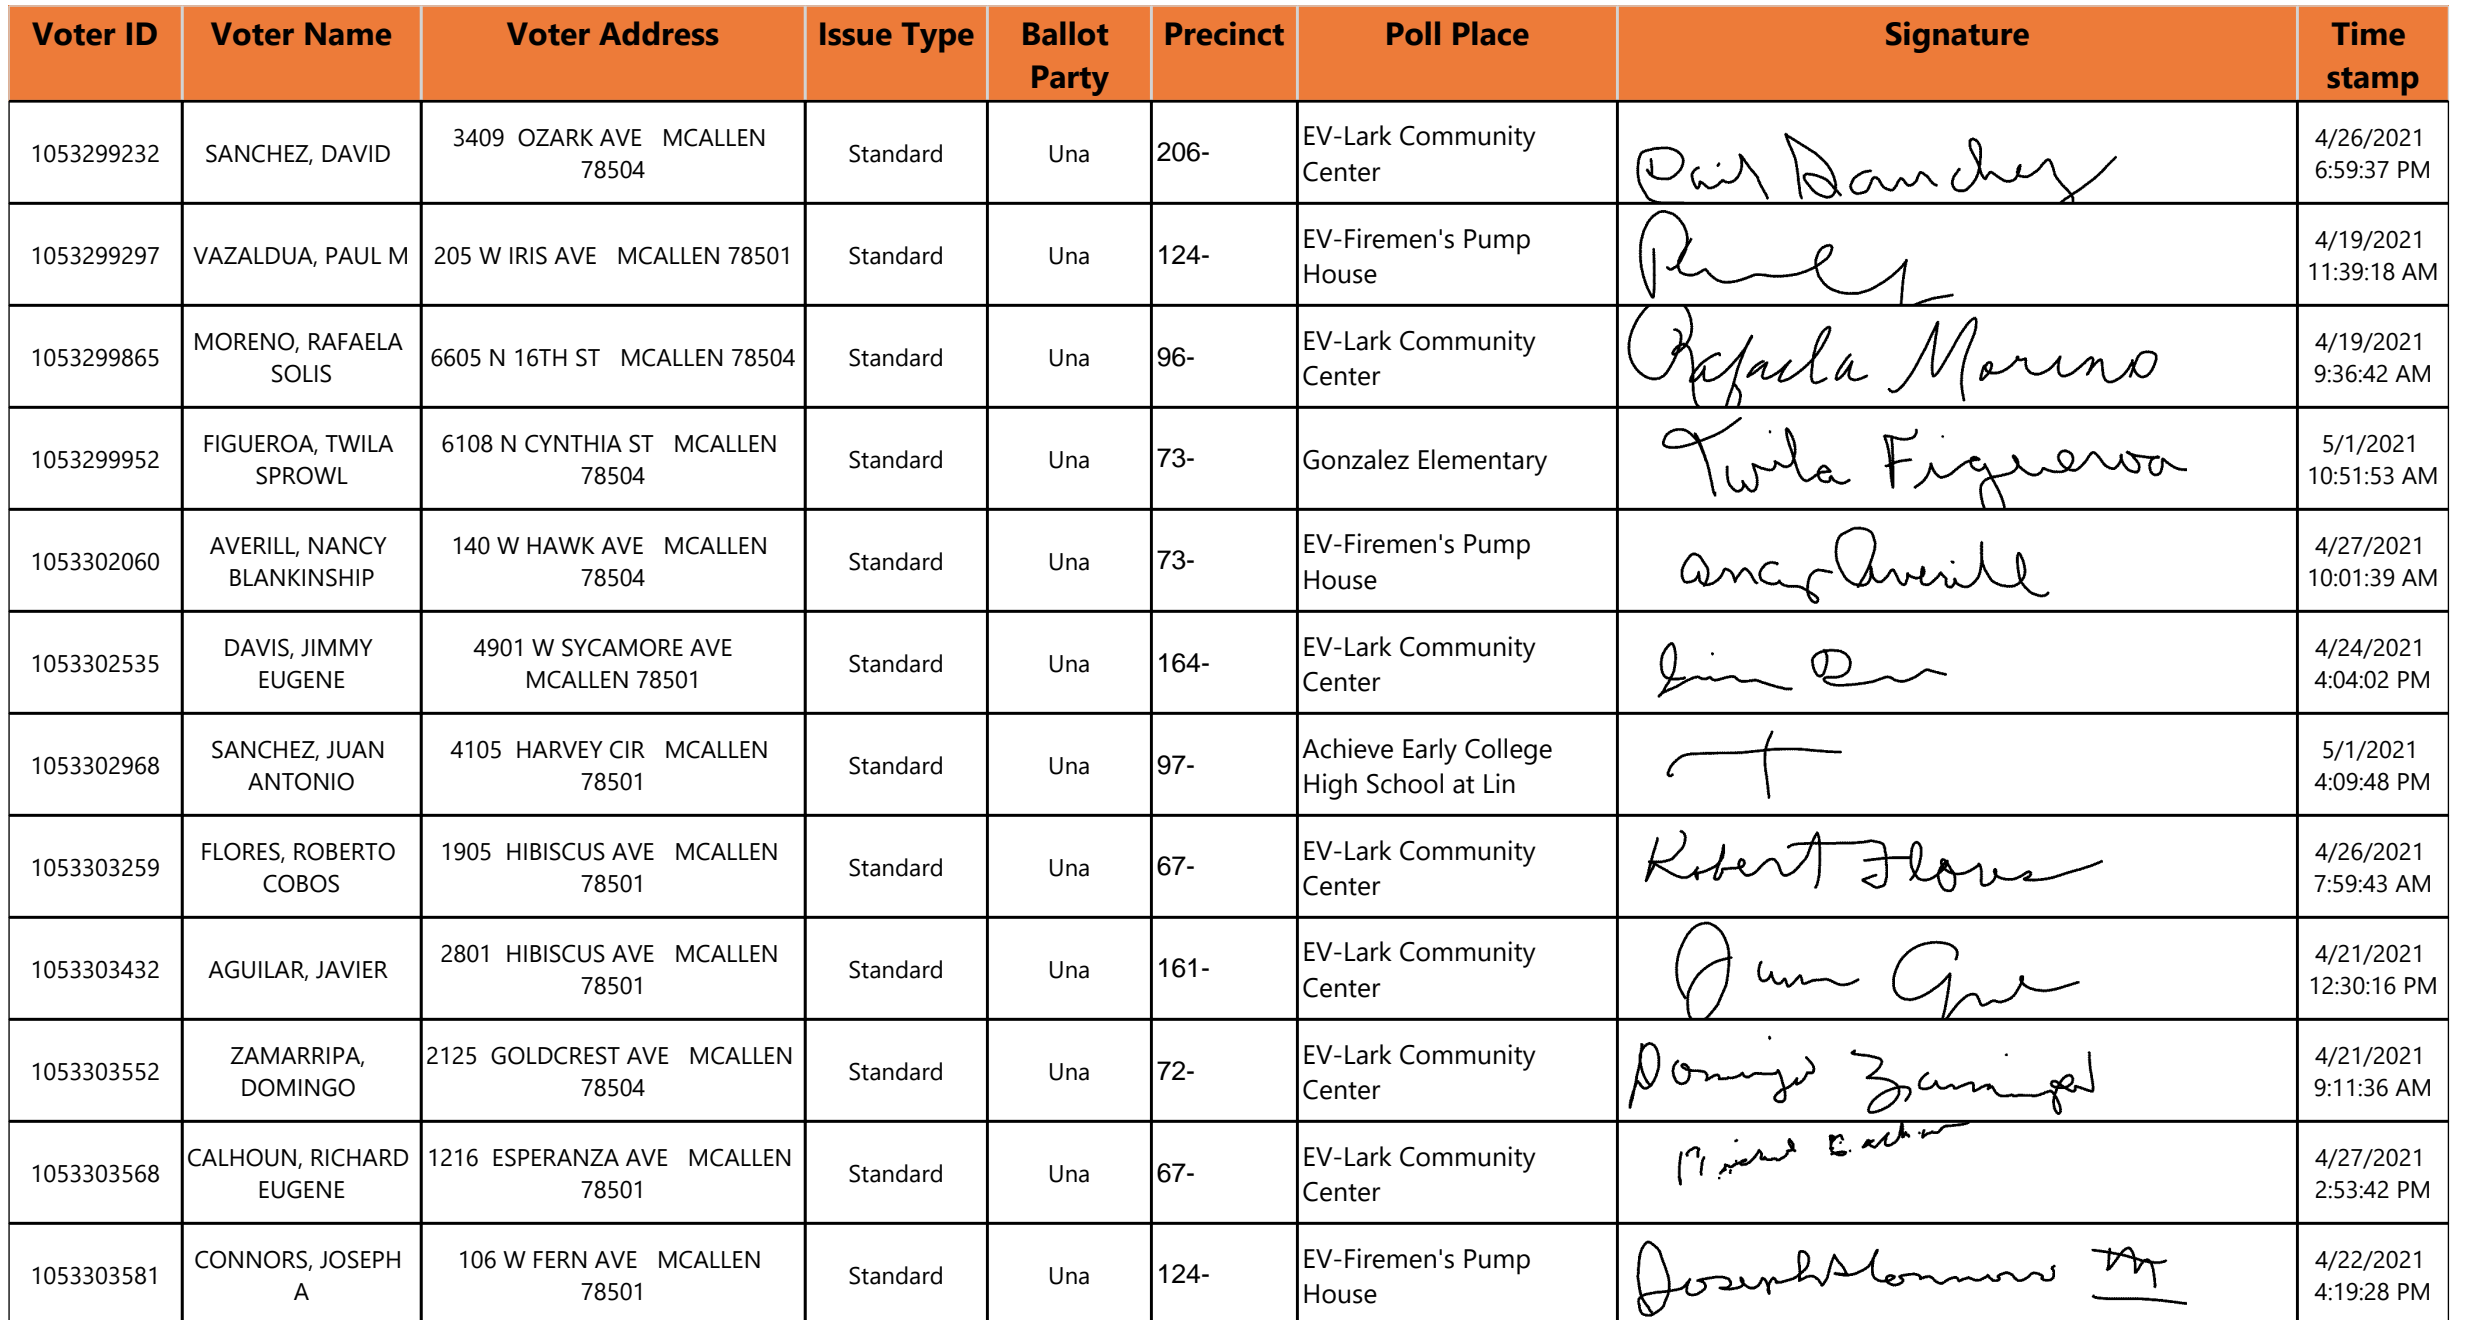 Voter ID Voter Name Voter Address Issue Type Ballot Party Precinct Poll Place Signature Time stamp
1053299232 SANCHEZ, DAVID 3409 OZARK AVE MCALLEN 78504 Standard Una 206- EV-Lark Community Center Sanchez 4/26/2021 6:59:37 PM
1053299297 VAZALDUA, PAUL M 205 W IRIS AVE MCALLEN 78501 Standard Una 124- EV-Firemen's Pump House 4/19/2021 11:39:18 AM
1053299865 MORENO, RAFAELA SOLIS 6605 N 16TH ST MCALLEN 78504 Standard Una 96- EV-Lark Community Center Rafaela Moreno 4/19/2021 9:36:42 AM
1053299952 FIGUEROA, TWILA SPROWL 6108 N CYNTHIA ST MCALLEN 78504 Standard Una 73- Gonzalez Elementary Twila Figueroa 5/1/2021 10:51:53 AM
1053302060 AVERILL, NANCY BLANKINSHIP 140 W HAWK AVE MCALLEN 78504 Standard Una 73- EV-Firemen's Pump House Averill 4/27/2021 10:01:39 AM
1053302535 DAVIS, JIMMY EUGENE 4901 W SYCAMORE AVE MCALLEN 78501 Standard Una 164- EV-Lark Community Center 4/24/2021 4:04:02 PM
1053302968 SANCHEZ, JUAN ANTONIO 4105 HARVEY CIR MCALLEN 78501 Standard Una 97- Achieve Early College High School at Lin 5/1/2021 4:09:48 PM
1053303259 FLORES, ROBERTO COBOS 1905 HIBISCUS AVE MCALLEN 78501 Standard Una 67- EV-Lark Community Center Robert Flores 4/26/2021 7:59:43 AM
1053303432 AGUILAR, JAVIER 2801 HIBISCUS AVE MCALLEN 78501 Standard Una 161- EV-Lark Community Center 4/21/2021 12:30:16 PM
1053303552 ZAMARRIPA, DOMINGO 2125 GOLDCREST AVE MCALLEN 78504 Standard Una 72- EV-Lark Community Center Domingo 4/21/2021 9:11:36 AM
1053303568 CALHOUN, RICHARD EUGENE 1216 ESPERANZA AVE MCALLEN 78501 Standard Una 67- EV-Lark Community Center 4/27/2021 2:53:42 PM
1053303581 CONNORS, JOSEPH A 106 W FERN AVE MCALLEN 78501 Standard Una 124- EV-Firemen's Pump House Joseph A Connors III 4/22/2021 4:19:28 PM